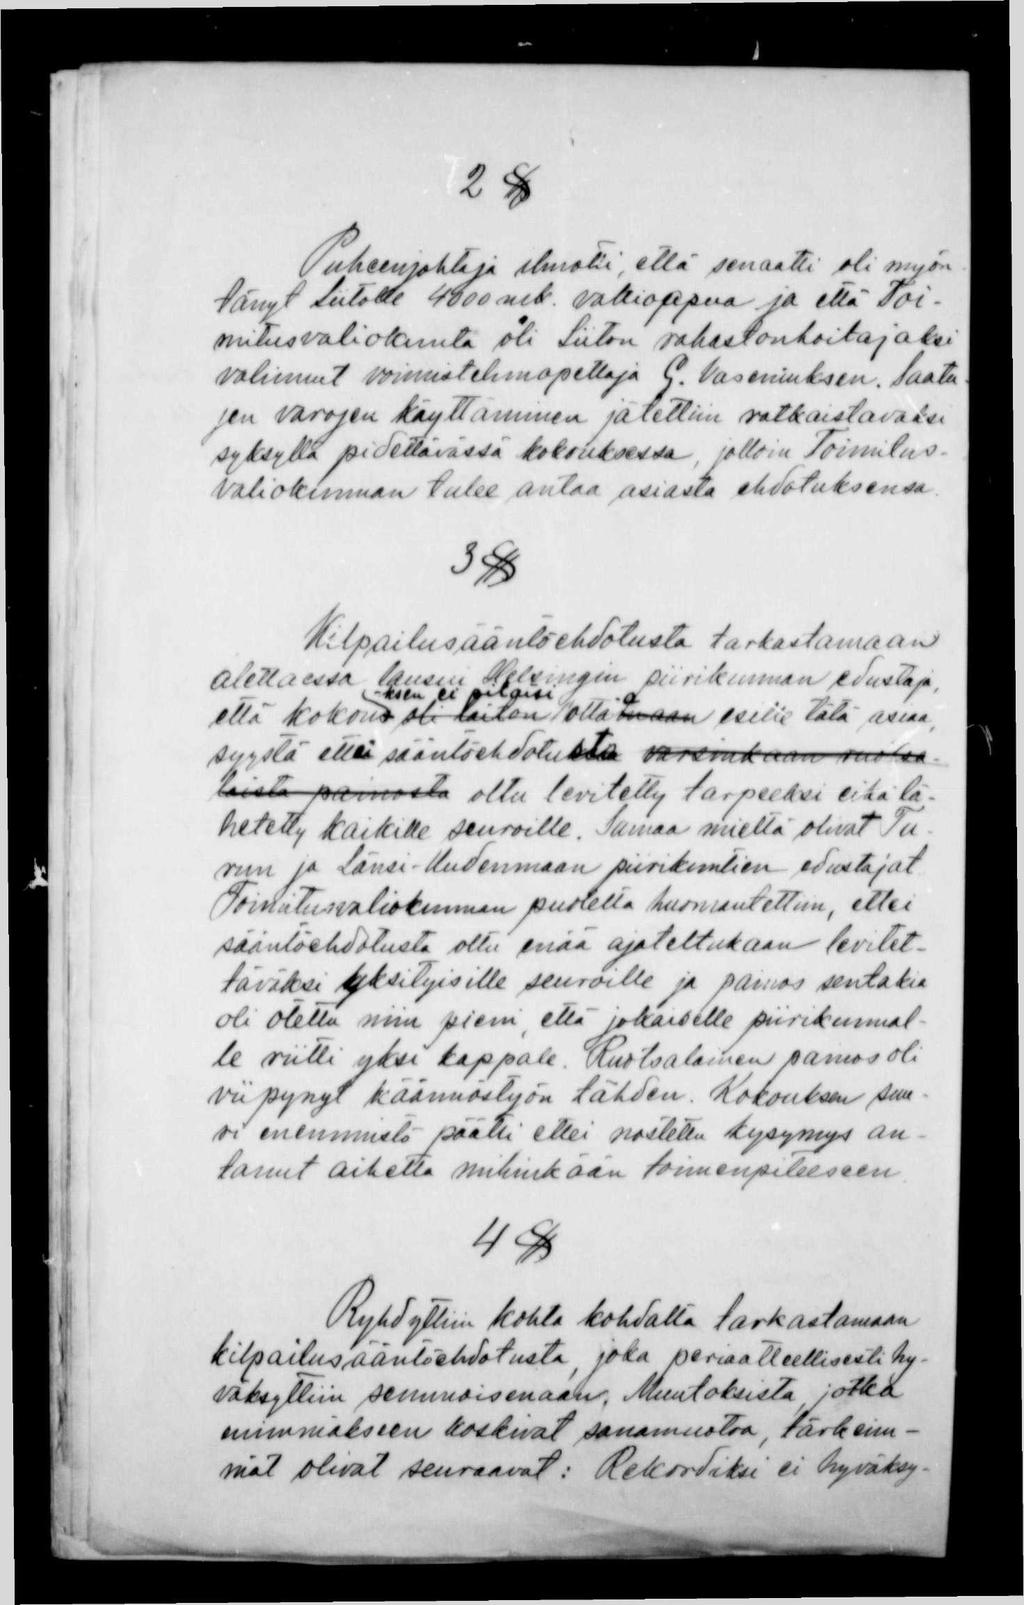 2 §
Puheenjohtaja ilmotti, että senaatti oli myön-
tänyt Liitolle 4000 mk. valtioapua ja että Toi-
mitusvaliokunta oli Liiton rahastonhoitajaksi
valinnut voimistelunopettaja G. Vaseniuksen. Saatu-
jen varojen käyttäminen jätettiin ratkaistavaksi
syksyllä pidettävässä kokouksessa, jolloin Toimitus-
valiokunnan tulee antaa asiasta ehdotuksensa.
3 §
Kilpailusääntöehdotusta tarkastamaan
alettaessa lausui Helsingin piirikunnan edustaja,
-ksen ei pitäisi
että kokous oli laiton ottamaan esille tätä asiaa,
syystä ettei sääntöehdotusta varsinkaan ruotsa-
laista painosta oltu levitetty tarpeeksi eikä lä-
hetetty kaikille seuroille. Samaa mieltä olivat Tu-
run ja Länsi-Uudenmaan piirikuntien edustajat.
Toimitusvaliokunnan puolelta huomautettiin, ettei
sääntöehdotusta oltu enää ajateltukaan levitet-
täväksi yksityisille seuroille ja painos sentakia
oli otettu niin pieni, että jokaiselle piirikunnal-
le riitti yksi kappale. Ruotsalainen painos oli
viipynyt käännöstyön tähden. Kokouksen suu-
ri enemmistö päätti ettei nostettu kysymys an-
tanut aihetta mihinkään toimenpiteeseen.
4 §
Ryhdyttiin kohta kohdalta tarkastamaan
kilpailusääntöehdotusta, joka periaatteellisesti hy-
väksyttiin semmoisenaan. Muutoksista, jotka
enimmäkseen koskivat sanamuotoa, tärkeim-
mät olivat seuraavat: Rekordiksi ei hyväksy-